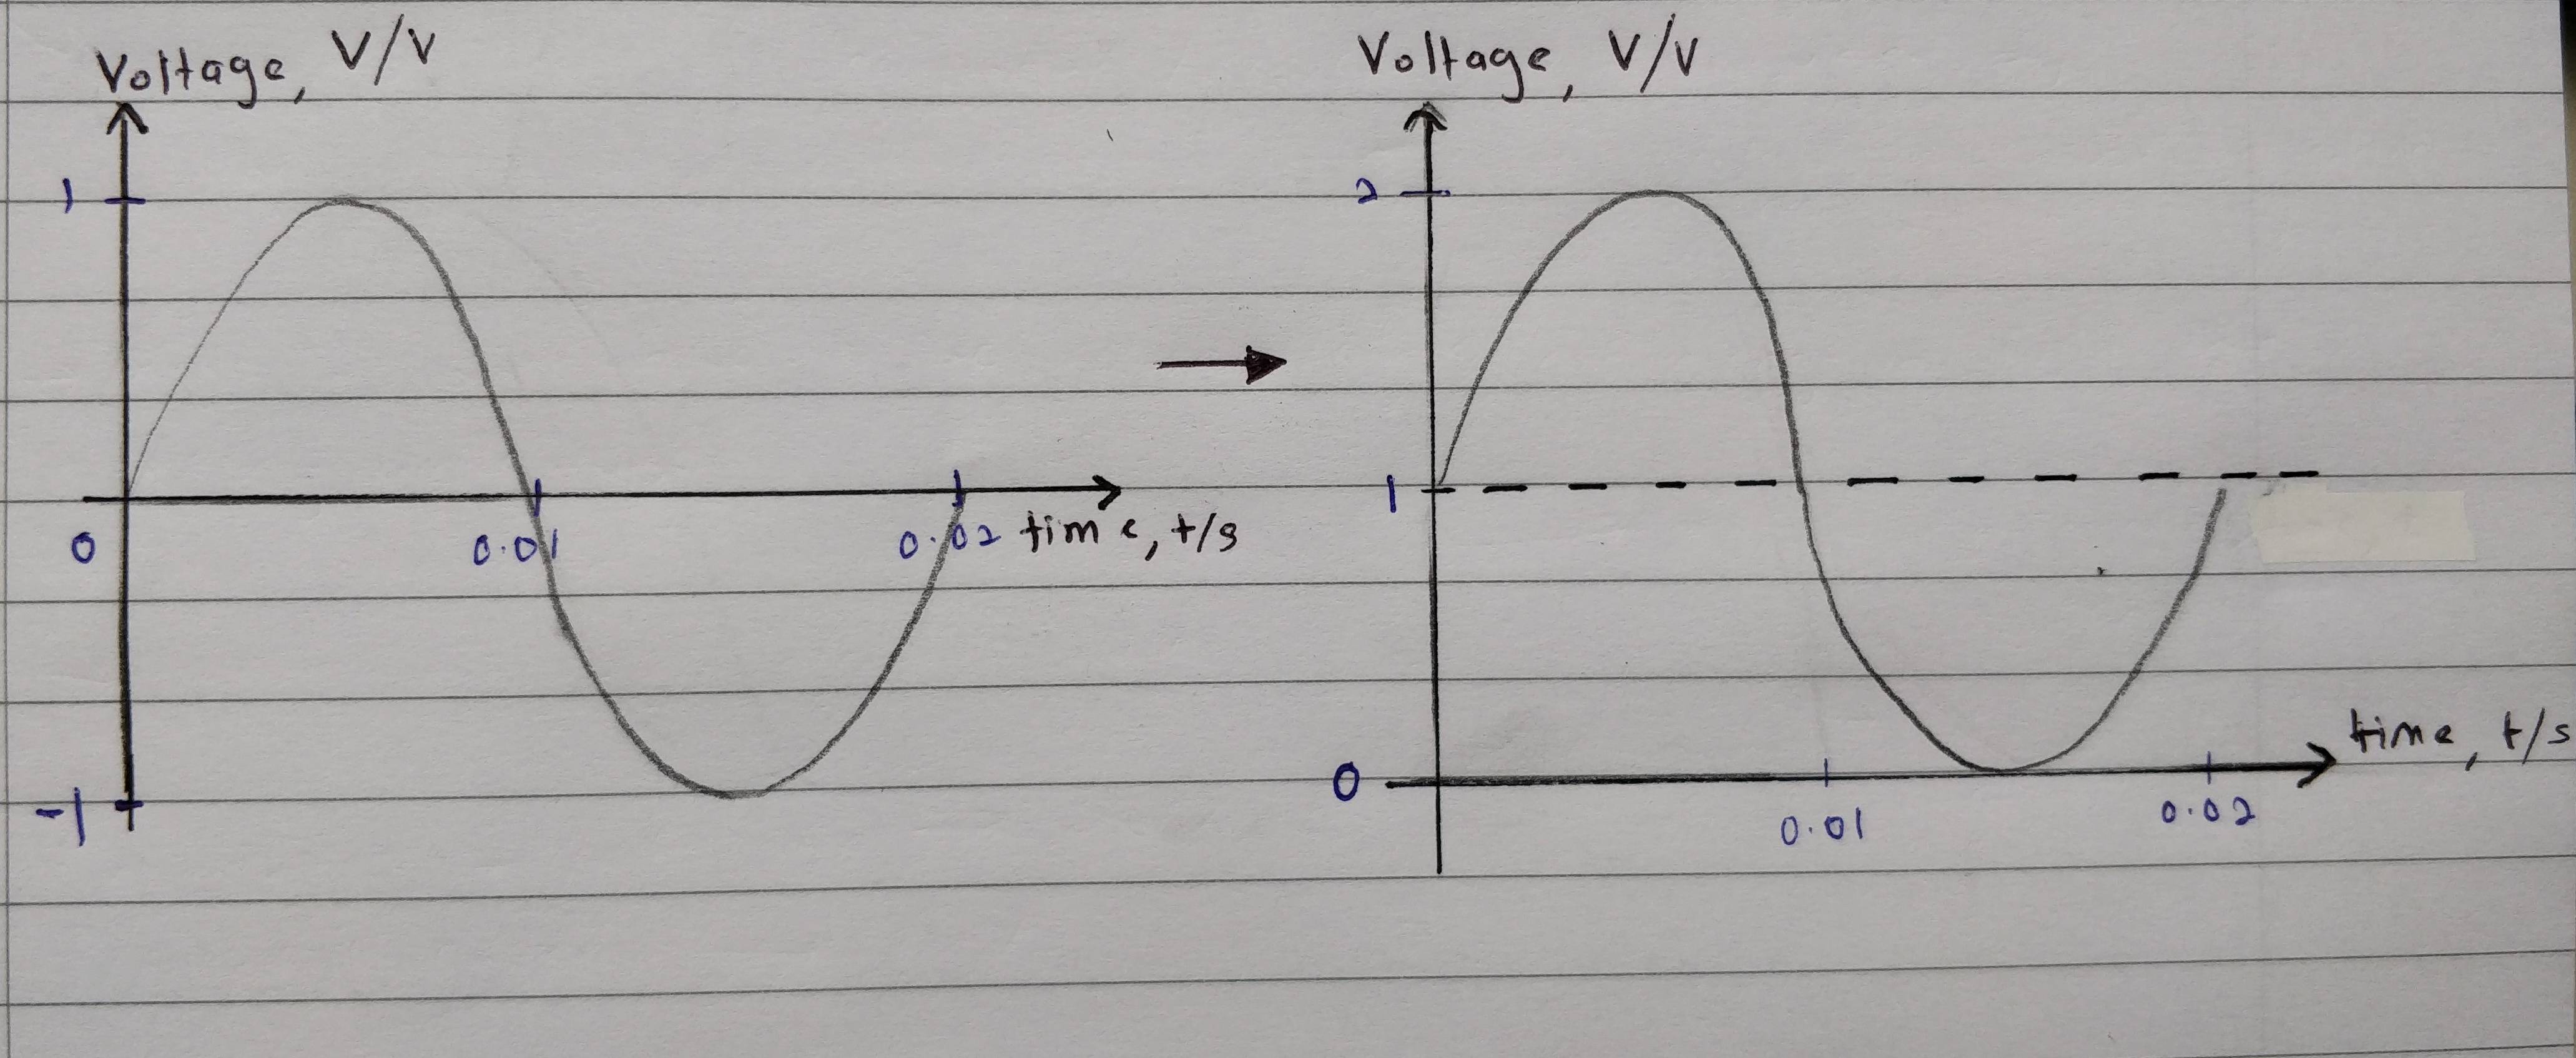 Voltage, V/V
1
0
0.01
0.02
time, t/s
-1
Voltage, V/V
2
1
0
0.01
0.02
time, t/s